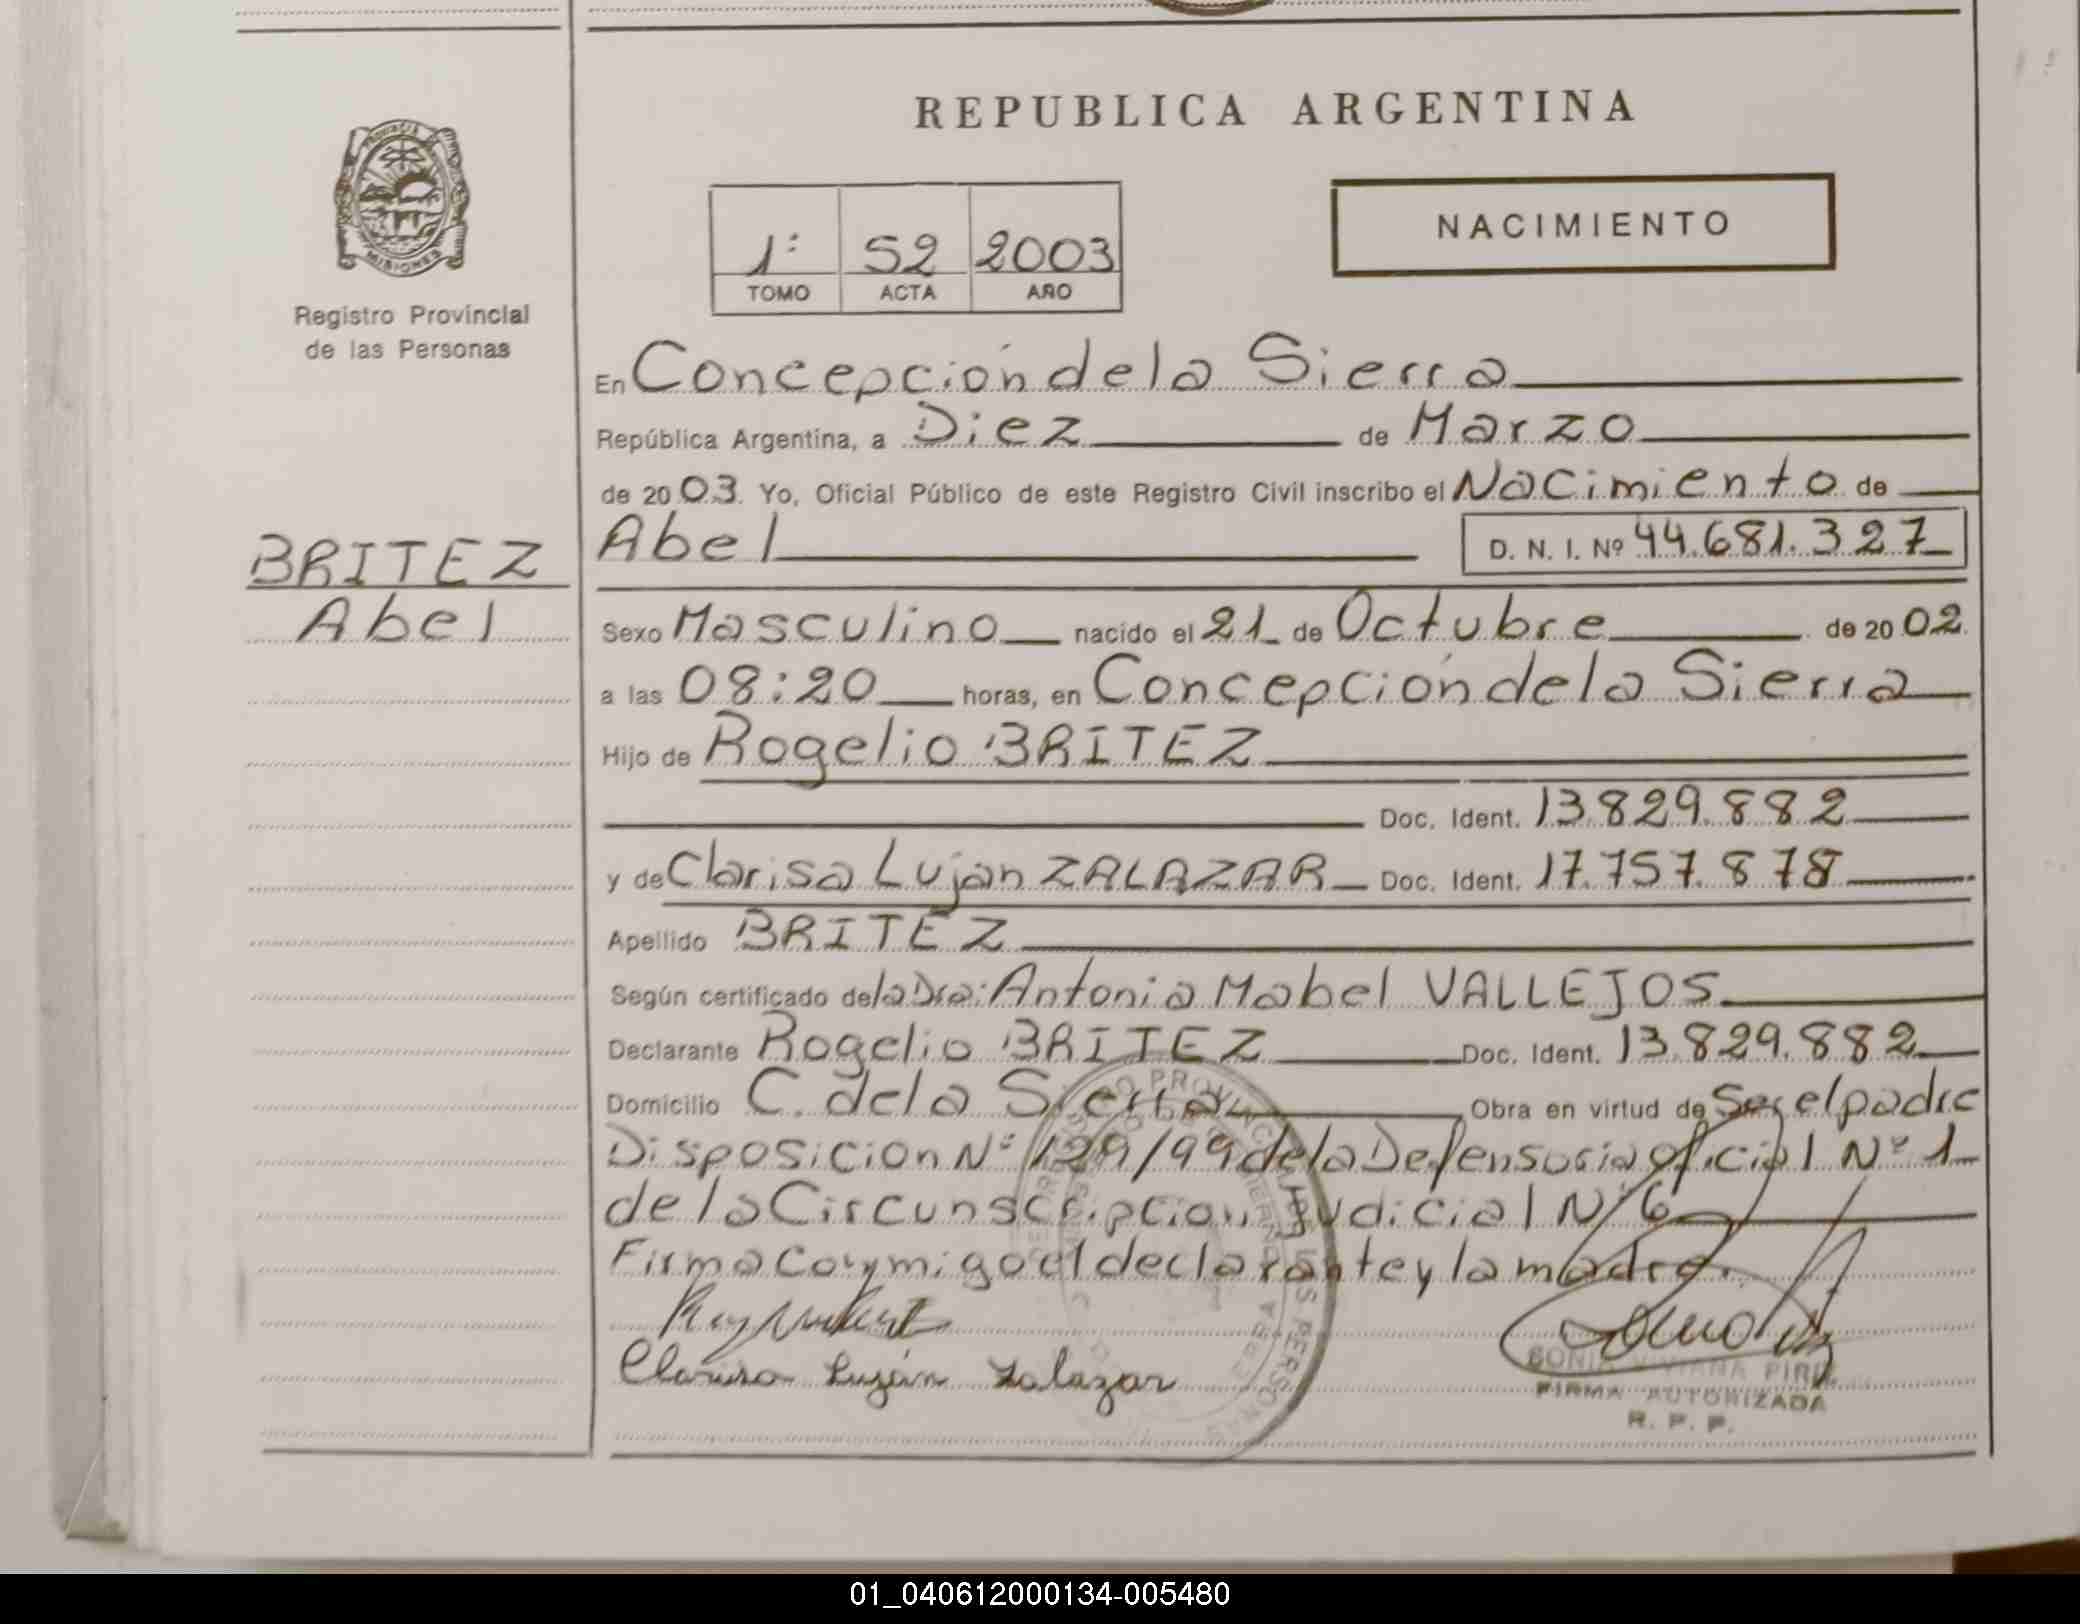 REPUBLICA ARGENTINA
PROVINCIA
MISIONES
Registro Provincial
de las Personas
1º S2 2003
TOMO ACTA AÑO
NACIMIENTO
En Concepción de la Sierra
República Argentina, a Diez de Marzo
de 2003. Yo, Oficial Público de este Registro Civil inscribo el Nacimiento de
BRITEZ
Abel
Abel D. N. I. Nº 44.681.327
Sexo Masculino nacido el 21 de Octubre de 2002
a las 08:20 horas, en Concepción de la Sierra
Hijo de Rogelio BRITEZ
Doc. Ident. 13.829.882
y de Clarisa Lujan ZALAZAR Doc. Ident. 17.757.878
Apellido BRITEZ
Según certificado de la Dra: Antonia Mabel VALLEJOS
Declarante Rogelio BRITEZ Doc. Ident. 13.829.882
Domicilio C. de la Sierra Obra en virtud de Ser el padre
Disposicion Nº 129/99 de la Defensoria oficial Nº 1
de la Circunscripcion Judicial Nº 6
Firma conmigo el declarante y la madre.
Clarisa Luján Zalazar
SONIA VIVIANA
FIRMA AUTORIZADA
R. P. P.
01_040612000134-005480